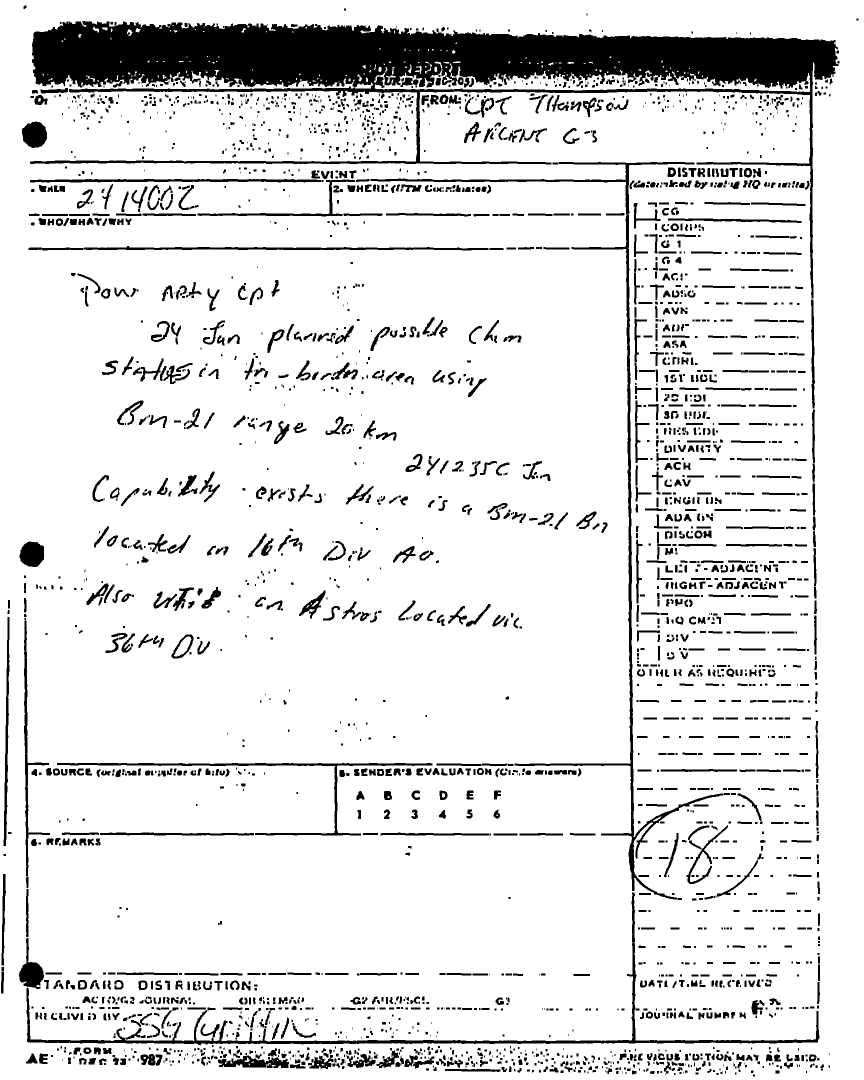 SPOT REPORT
FROM: CPT Thompson
ARCENT G-3
EVENT
WHEN
241400Z
2. WHERE (UTM Coordinates)
WHO/WHAT/WHY
Arty Cpt
24 Jan planned possible Chem
in tri-border area using
Bm-21 range 20 km
241235C Jan
Capability exists there is a Bm-21 Bn
located in 16th Div AO.
Also an Astros Located vic
36th Div.
4. SOURCE (original supplier of info)
5. SENDER'S EVALUATION (Circle answers)
A B C D E F
1 2 3 4 5 6
6. REMARKS
DISTRIBUTION
(determined by using HQ or units)
CG
CORPS
G 1
G 4
ADSO
AVN
ASA
1ST BDE
2D BDE
3D BDE
RES BDE
DIVARTY
ACR
CAV
ENGR BN
ADA BN
DISCOM
MI
LEFT-ADJACENT
RIGHT-ADJACENT
PMO
HQ CMDT
DIV
DIV
OTHER AS REQUIRED
18
STANDARD DISTRIBUTION:
ACTO/G2 JOURNAL OB SITMAP G2 AIR/ G3
RECEIVED BY SSG Griffin
DATE/TIME RECEIVED
JOURNAL NUMBER
AE FORM 1 DEC 73 987
PREVIOUS EDITION MAY BE USED.